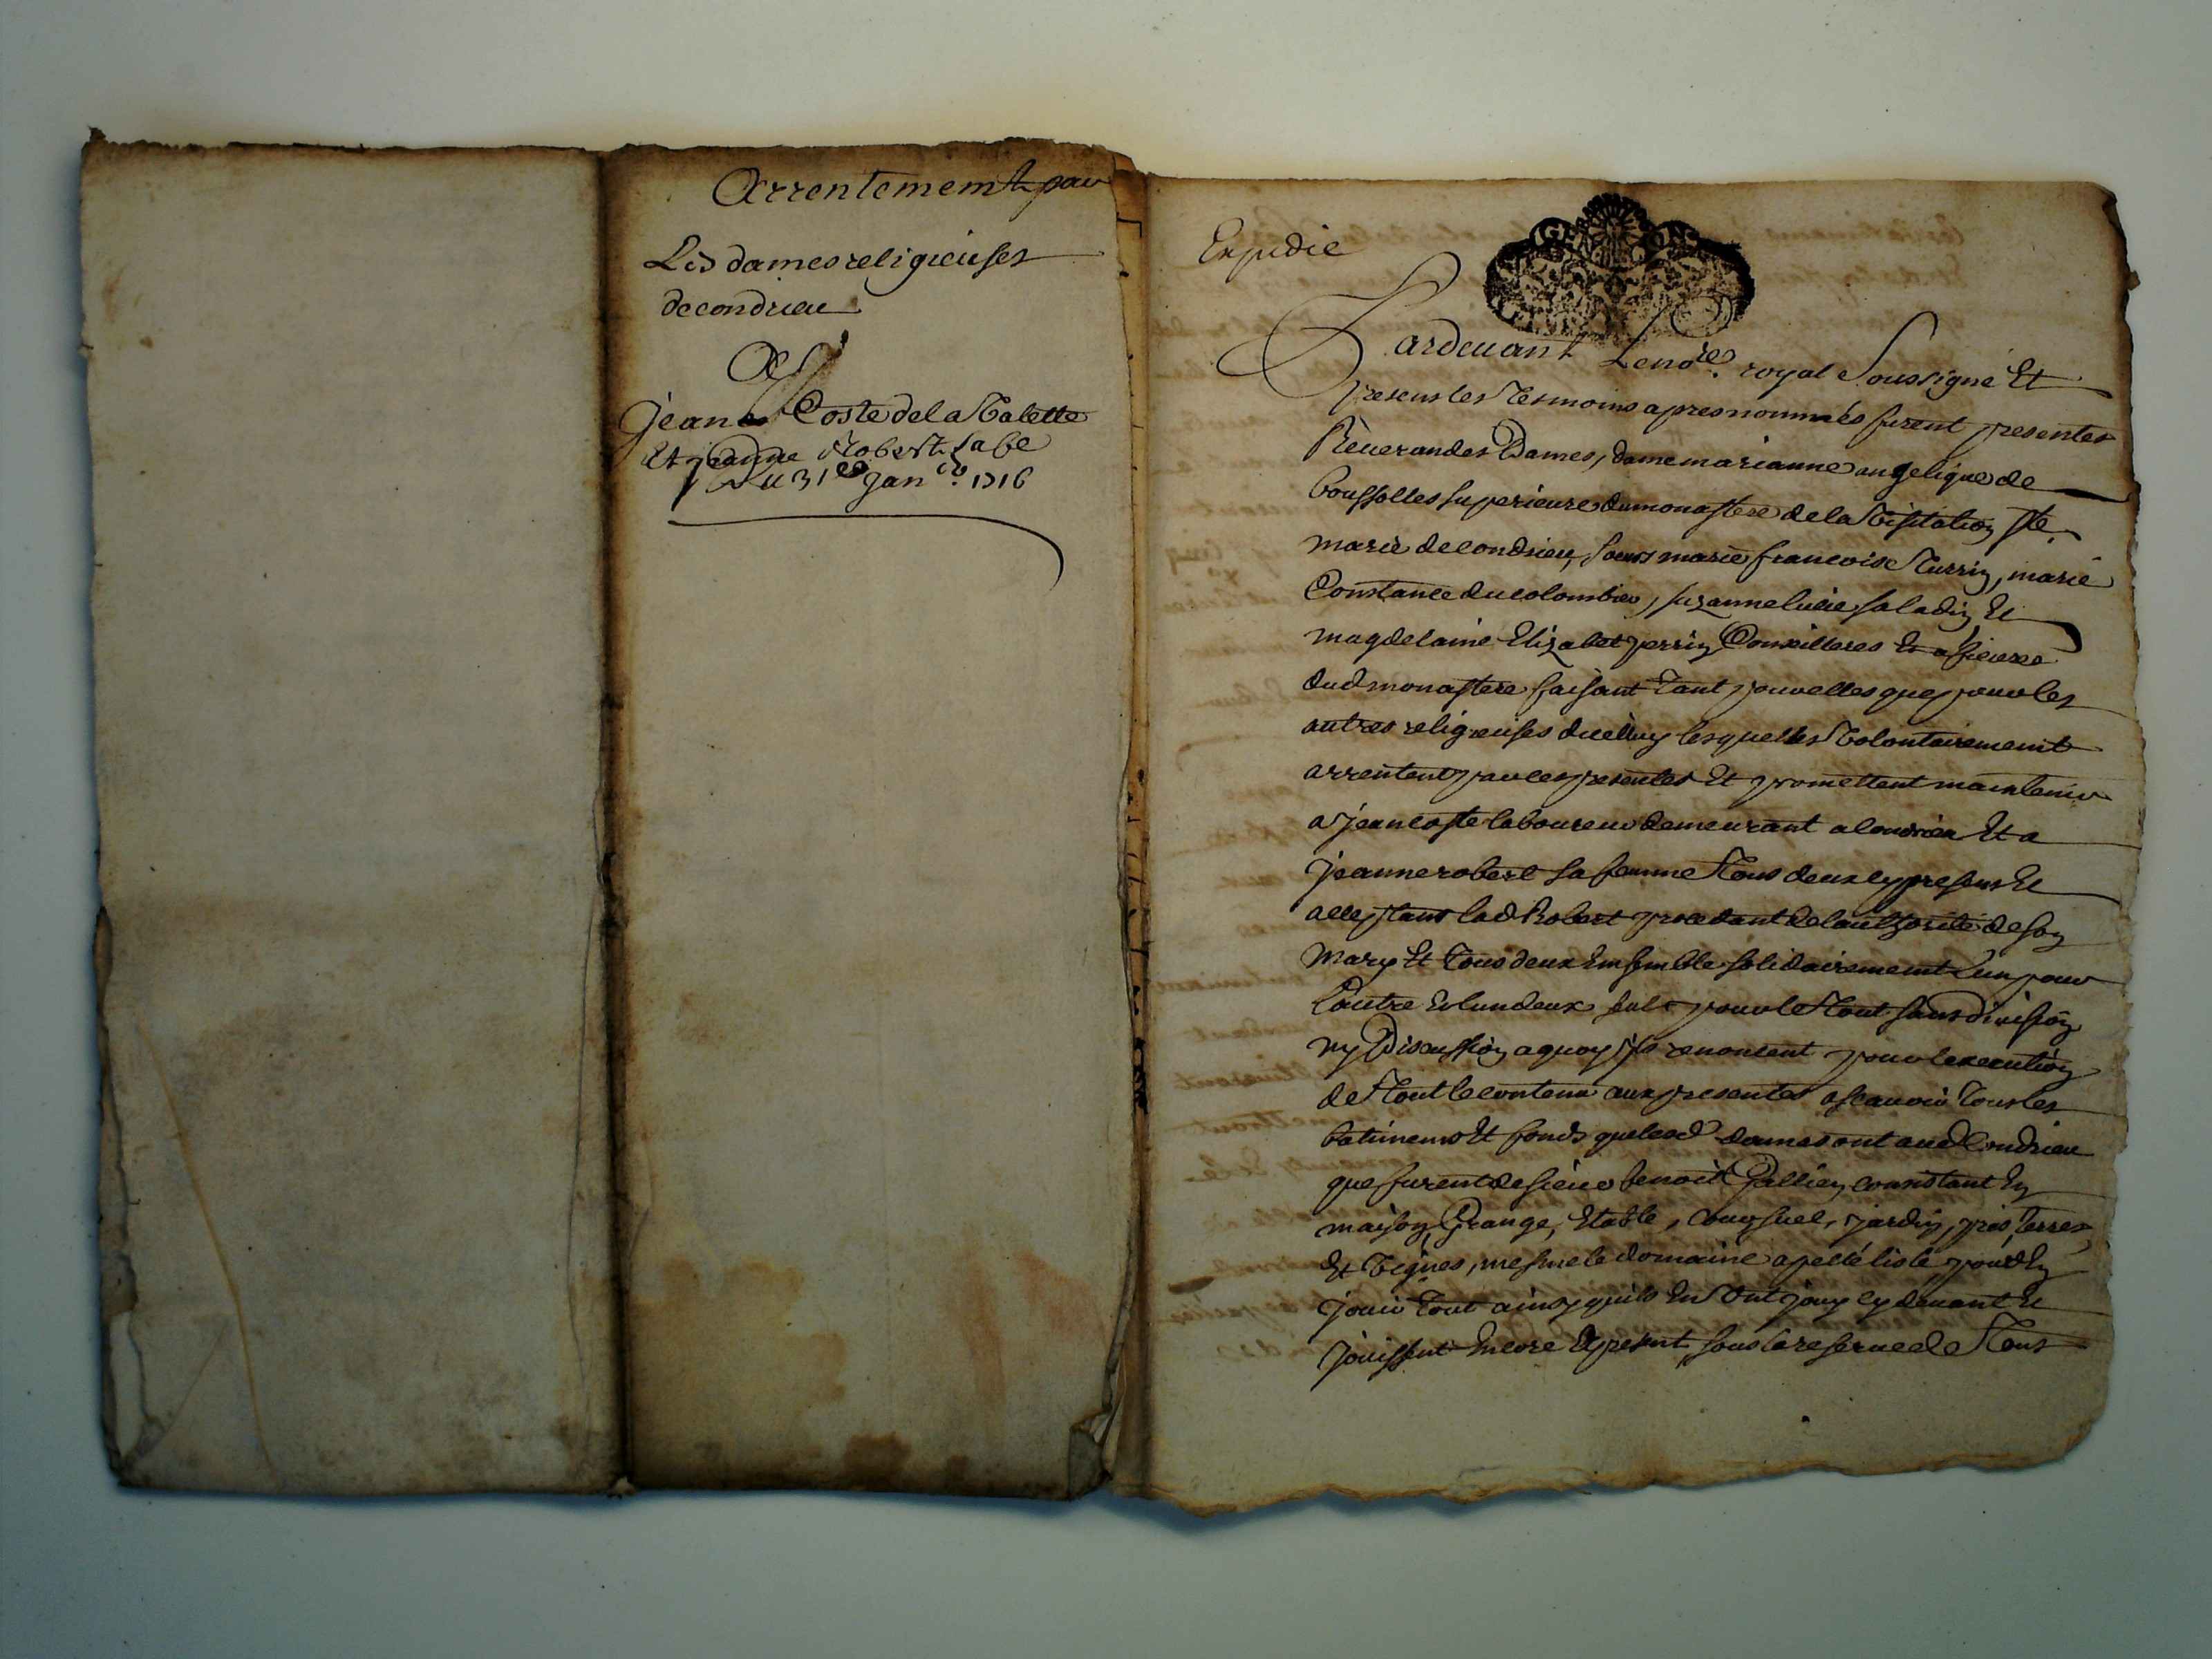 Arrentement par
Les dames religieuses
de condrieu
A
jean Coste de la Valette
Et jeanne Robert sa fe
Du 31e janer. 1716
Expedie
GENERALITE LION
Pardevant Le nore. royal Soussigné Et
presens les tesmoins apres nommés furent presentes
Reverandes Dames, dame marianne angelique de
boussolles superieure du monastere de la Visitation ste
marie de condrieu, soeurs marie francoise Turrin, marie
Constance du colombier, suzanne lucie saladin Et
magdelaine Elizabet perrin Conseilleres Et
dud monastere faisant tant pour elles que pour les
autres religieuses dicelluy lesquelles Volontairement
arrentent par ces presentes Et promettent maintenir
a jean coste laboureur demeurant a Condrieu Et a
jeanne robert sa femme tous deux cy presens Et
acceptans lad Robert procedant de lauthorité de son
mary Et tous deux Ensemble solidairement Lun pour
Lautre Et lun deux seul pour le tout sans division
ny Discussion a quoy ils renoncent pour lexecution
de tout le contenu aux presentes ascavoir tous les
batimens Et fonds que lesd dames ont aud Condrieu
que furent de sieur benoit Gallien consistant En
maison, Grange, Etable, jardin, prés, terres
Et Vignes, mesme le domaine apellé lisle pour En
jouir tout ainsy quils En ont jouy cy devant Et
jouissent Encore apresent sous la reserve de tous